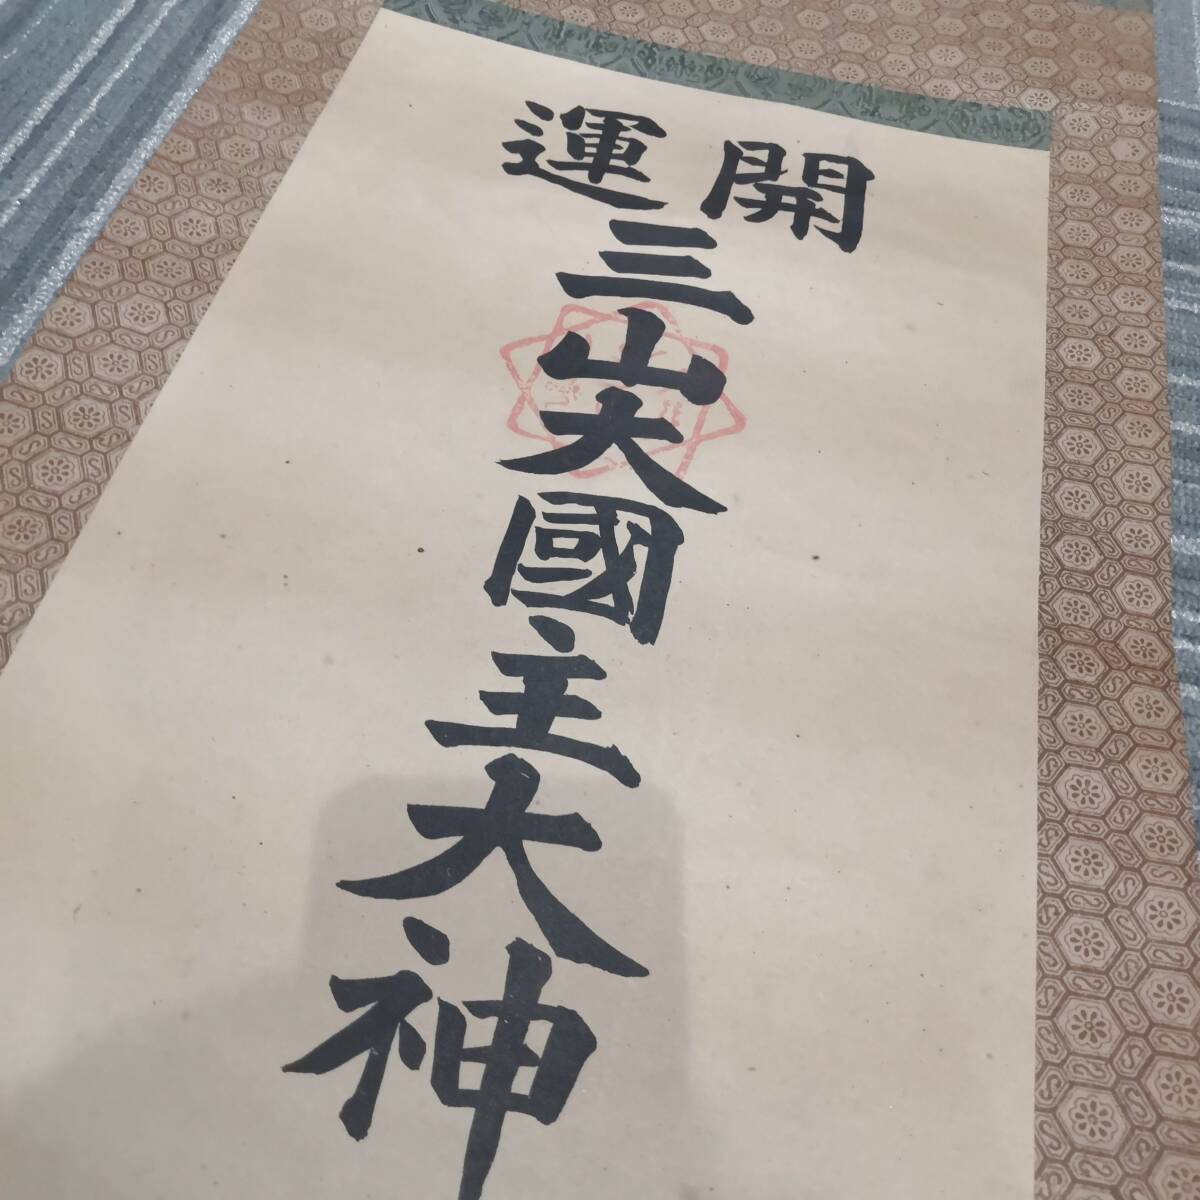 開運
三山大國主大神